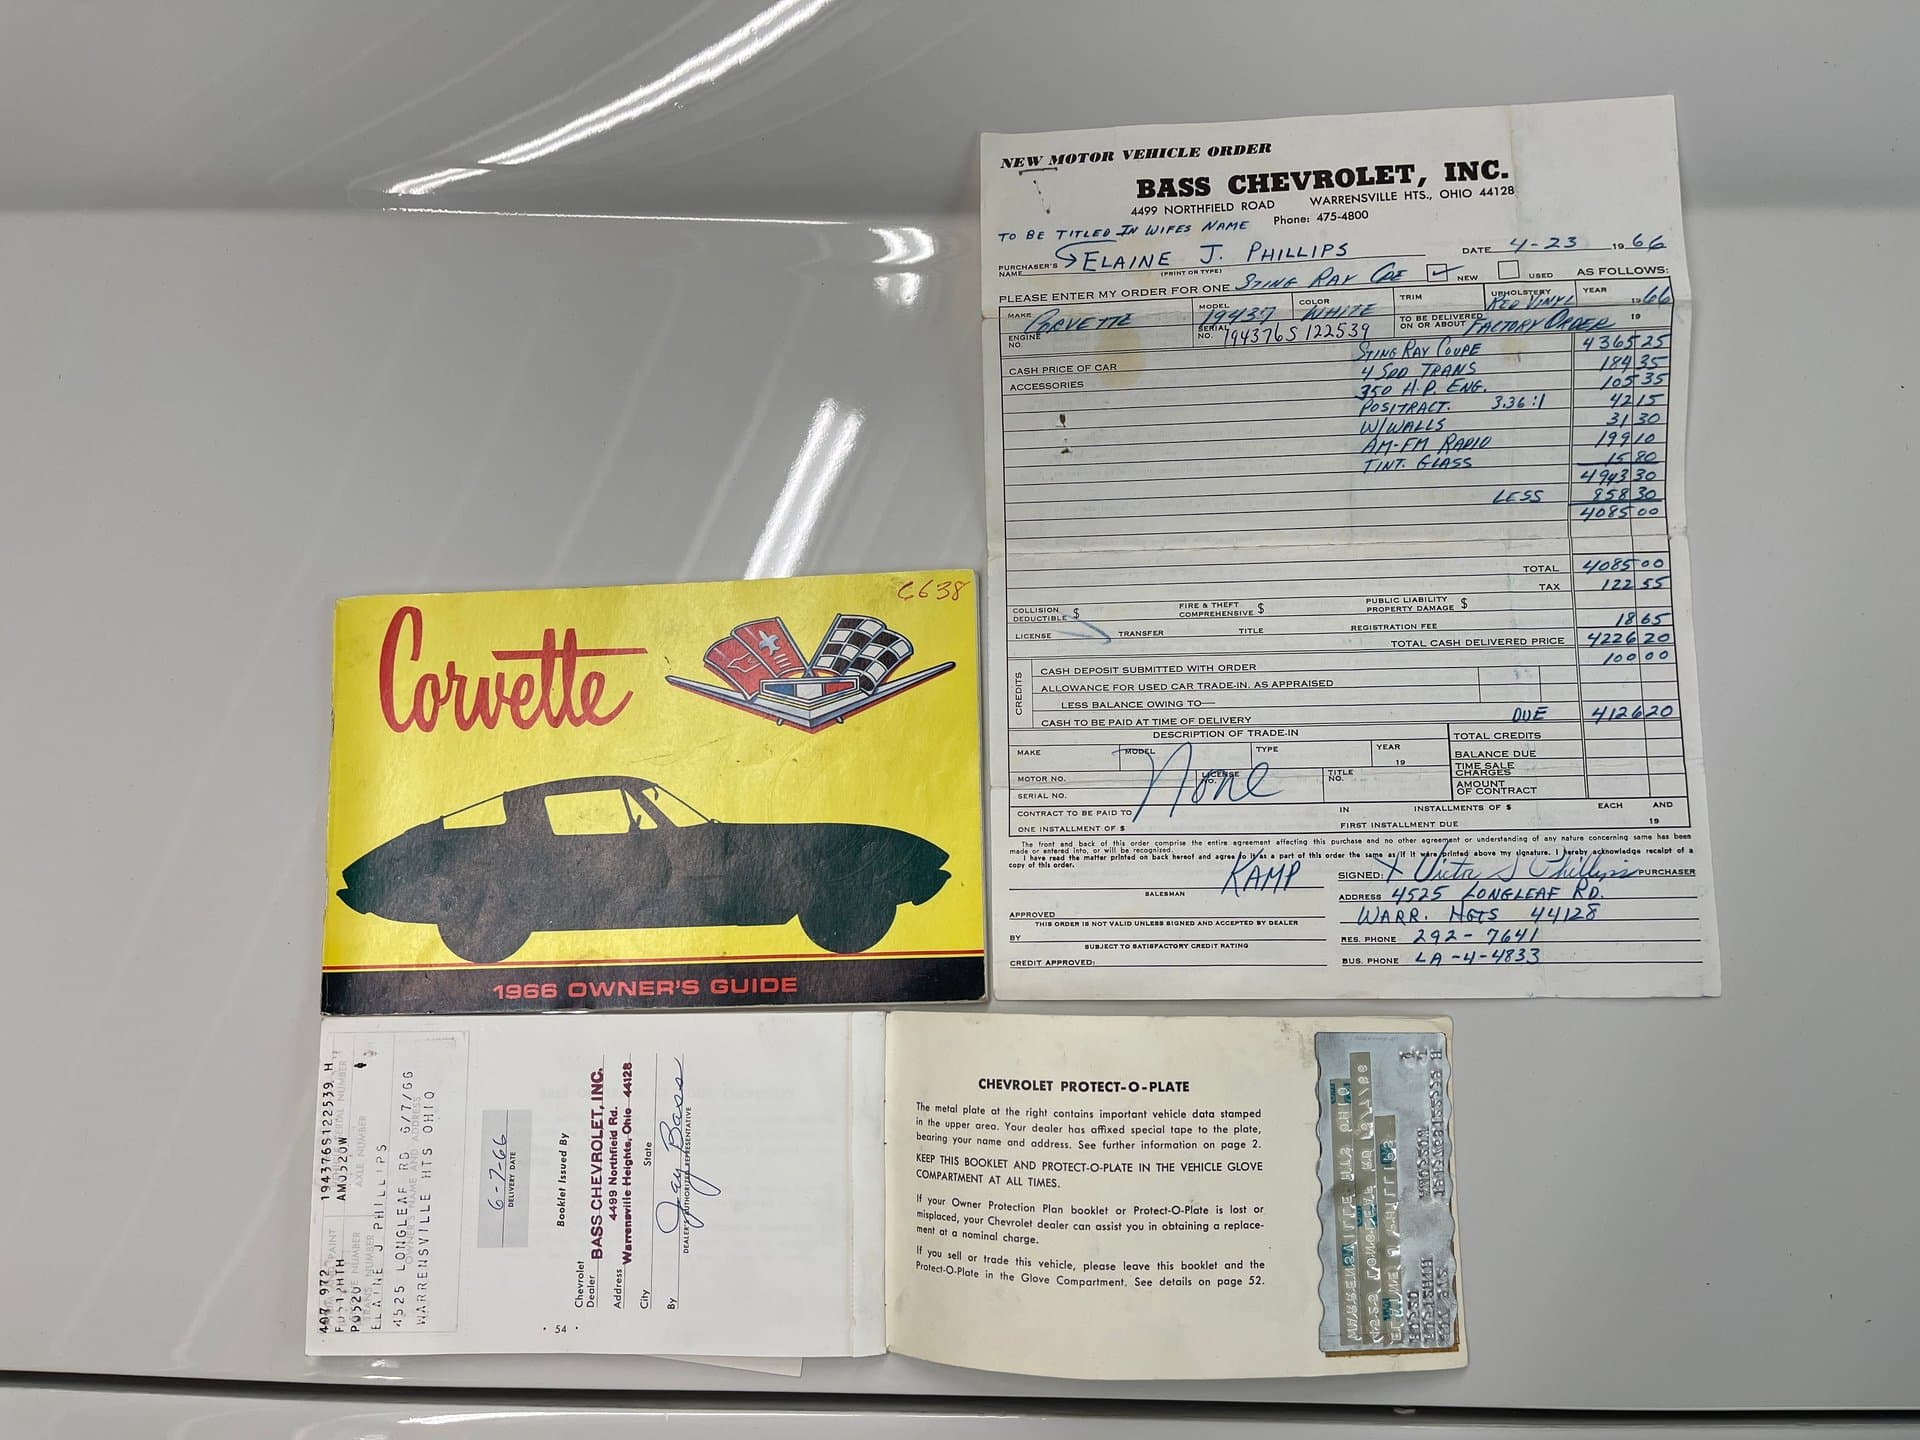 NEW MOTOR VEHICLE ORDER
BASS CHEVROLET, INC.
4499 NORTHFIELD ROAD WARRENSVILLE HTS., OHIO 44128
Phone: 475-4800
TO BE TITLED IN WIFES NAME
PURCHASER'S NAME ELAINE J. PHILLIPS DATE 4-23 1966
(PRINT OR TYPE)
PLEASE ENTER MY ORDER FOR ONE STING RAY CPE NEW USED AS FOLLOWS:
MAKE CORVETTE MODEL 19437 COLOR WHITE TRIM UPHOLSTERY RED VINYL YEAR 1966
ENGINE NO. SERIAL NO. 194376S122539 TO BE DELIVERED ON OR ABOUT FACTORY ORDER 19
CASH PRICE OF CAR STING RAY COUPE 4365 25
ACCESSORIES 4 SPD TRANS 184 35
350 H.P. ENG. 105 35
POSITRACT. 3.36:1 42 15
W/WALLS 31 30
AM-FM RADIO 199 10
TINT. GLASS 15 80
4943 30
LESS 858 30
4085 00
TOTAL 4085 00
TAX 122 55
COLLISION DEDUCTIBLE $ FIRE & THEFT COMPREHENSIVE $ PUBLIC LIABILITY PROPERTY DAMAGE $
LICENSE TRANSFER TITLE REGISTRATION FEE 18 65
TOTAL CASH DELIVERED PRICE 4226 20
CREDITS
CASH DEPOSIT SUBMITTED WITH ORDER 100 00
ALLOWANCE FOR USED CAR TRADE-IN. AS APPRAISED
LESS BALANCE OWING TO—
CASH TO BE PAID AT TIME OF DELIVERY DUE 4126 20
DESCRIPTION OF TRADE-IN TOTAL CREDITS
MAKE MODEL TYPE YEAR 19 BALANCE DUE
None
MOTOR NO. LICENSE NO. TITLE NO. TIME SALE CHARGES
SERIAL NO. AMOUNT OF CONTRACT
CONTRACT TO BE PAID TO IN INSTALLMENTS OF $ EACH AND
ONE INSTALLMENT OF $ FIRST INSTALLMENT DUE 19
The front and back of this order comprise the entire agreement affecting this purchase and no other agreement or understanding of any nature concerning same has been
made or entered into, or will be recognized.
I have read the matter printed on back hereof and agree to it as a part of this order the same as if it were printed above my signature. I hereby acknowledge receipt of a
copy of this order.
KAMP
SALESMAN
SIGNED: X Victor S Phillips PURCHASER
ADDRESS 4525 LONGLEAF RD.
WARR. HGTS 44128
RES. PHONE 292-7641
BUS. PHONE LA-4-4833
APPROVED
THIS ORDER IS NOT VALID UNLESS SIGNED AND ACCEPTED BY DEALER
BY
SUBJECT TO SATISFACTORY CREDIT RATING
CREDIT APPROVED:
C638
Corvette
1966 OWNER'S GUIDE
407 972 194376S122539 H
PO520 AM0520W
AXLE NUMBER
ELAINE J PHILLIPS
4525 LONGLEAF RD 6/7/66
OWNER'S NAME AND ADDRESS
WARRENSVILLE HTS OHIO
6-7-66
DELIVERY DATE
Booklet Issued By
Chevrolet Dealer BASS CHEVROLET, INC.
4499 Northfield Rd.
Address Warrensville Heights, Ohio 44128
City State
By Jay Bass
DEALER'S AUTHORIZED REPRESENTATIVE
· 54 ·
CHEVROLET PROTECT-O-PLATE
The metal plate at the right contains important vehicle data stamped
in the upper area. Your dealer has affixed special tape to the plate,
bearing your name and address. See further information on page 2.
KEEP THIS BOOKLET AND PROTECT-O-PLATE IN THE VEHICLE GLOVE
COMPARTMENT AT ALL TIMES.
If your Owner Protection Plan booklet or Protect-O-Plate is lost or
misplaced, your Chevrolet dealer can assist you in obtaining a replace-
ment at a nominal charge.
If you sell or trade this vehicle, please leave this booklet and the
Protect-O-Plate in the Glove Compartment. See details on page 52.